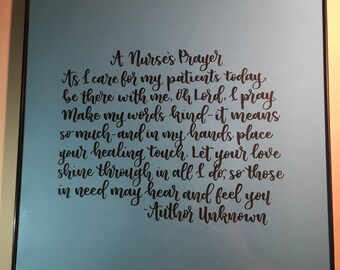 A Nurse's Prayer
As I care for my patients today
be there with me, Oh Lord, I pray.
Make my words kind-it means
so much-and in my hands place
your healing touch. Let your love
shine through in all I do, so those
in need may hear and feel you.
-Author Unknown